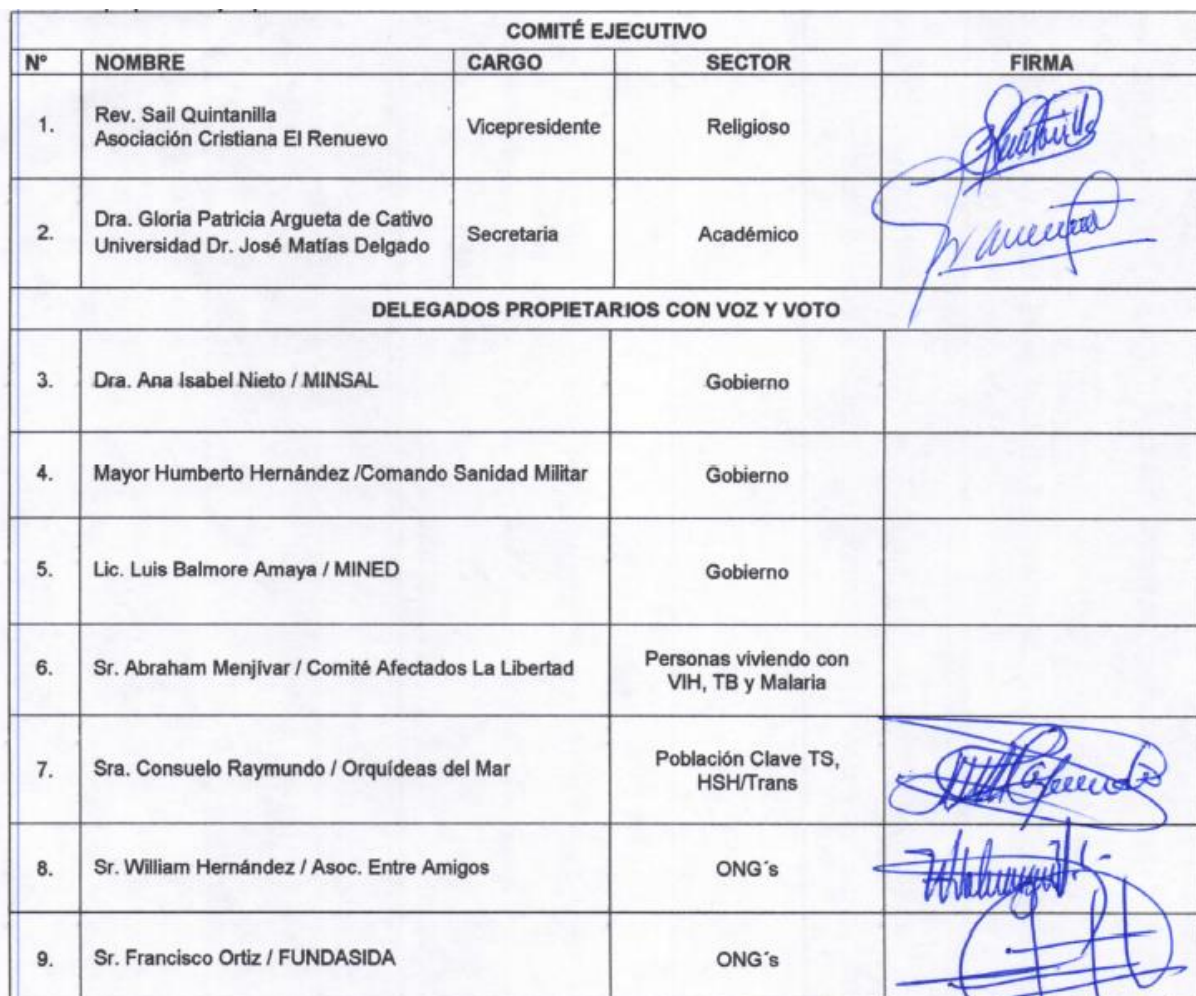 COMITÉ EJECUTIVO
N° NOMBRE CARGO SECTOR FIRMA
1. Rev. Sail Quintanilla
Asociación Cristiana El Renuevo Vicepresidente Religioso
2. Dra. Gloria Patricia Argueta de Cativo
Universidad Dr. José Matías Delgado Secretaria Académico
DELEGADOS PROPIETARIOS CON VOZ Y VOTO
3. Dra. Ana Isabel Nieto / MINSAL Gobierno
4. Mayor Humberto Hernández /Comando Sanidad Militar Gobierno
5. Lic. Luis Balmore Amaya / MINED Gobierno
6. Sr. Abraham Menjívar / Comité Afectados La Libertad Personas viviendo con
VIH, TB y Malaria
7. Sra. Consuelo Raymundo / Orquídeas del Mar Población Clave TS,
HSH/Trans
8. Sr. William Hernández / Asoc. Entre Amigos ONG´s
9. Sr. Francisco Ortiz / FUNDASIDA ONG´s